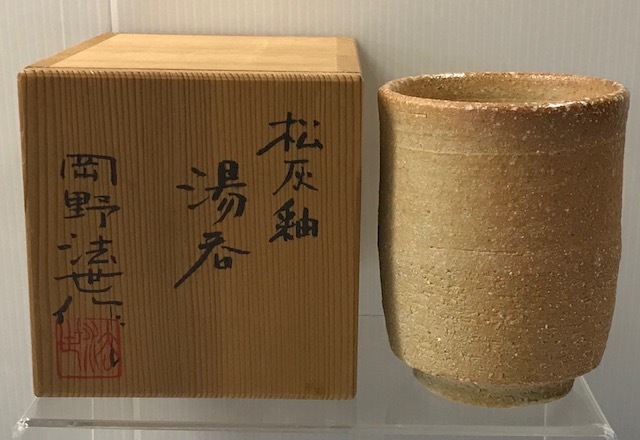 松灰釉
湯呑
岡野法世作